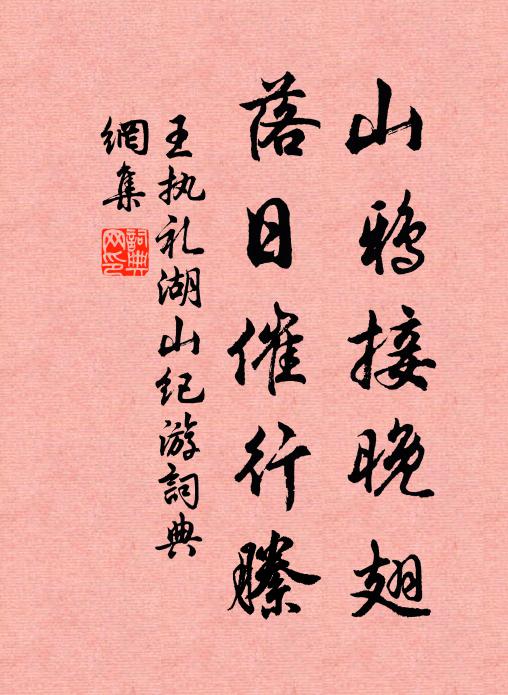 山鸦接晚翅
落日催行縢
王执礼湖山纪游詞典
網集
詞典網印